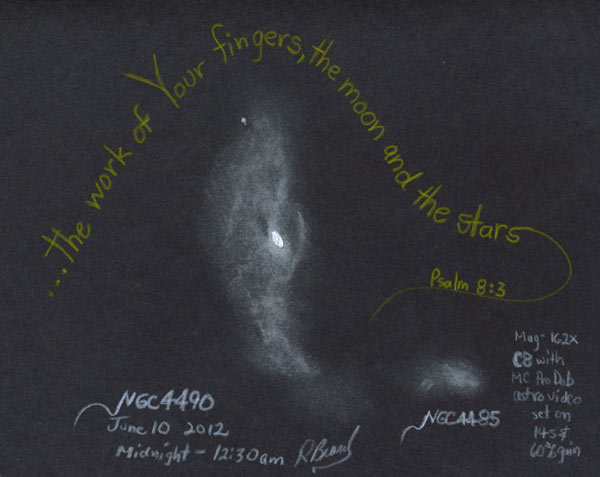 ...the work of Your fingers, the moon and the stars
Psalm 8:3
NGC4490
June 10 2012
Midnight - 12:30am
NGC4485
Mag- 162X
C8 with
MC Pro Dob
astro video
set on
60% gain